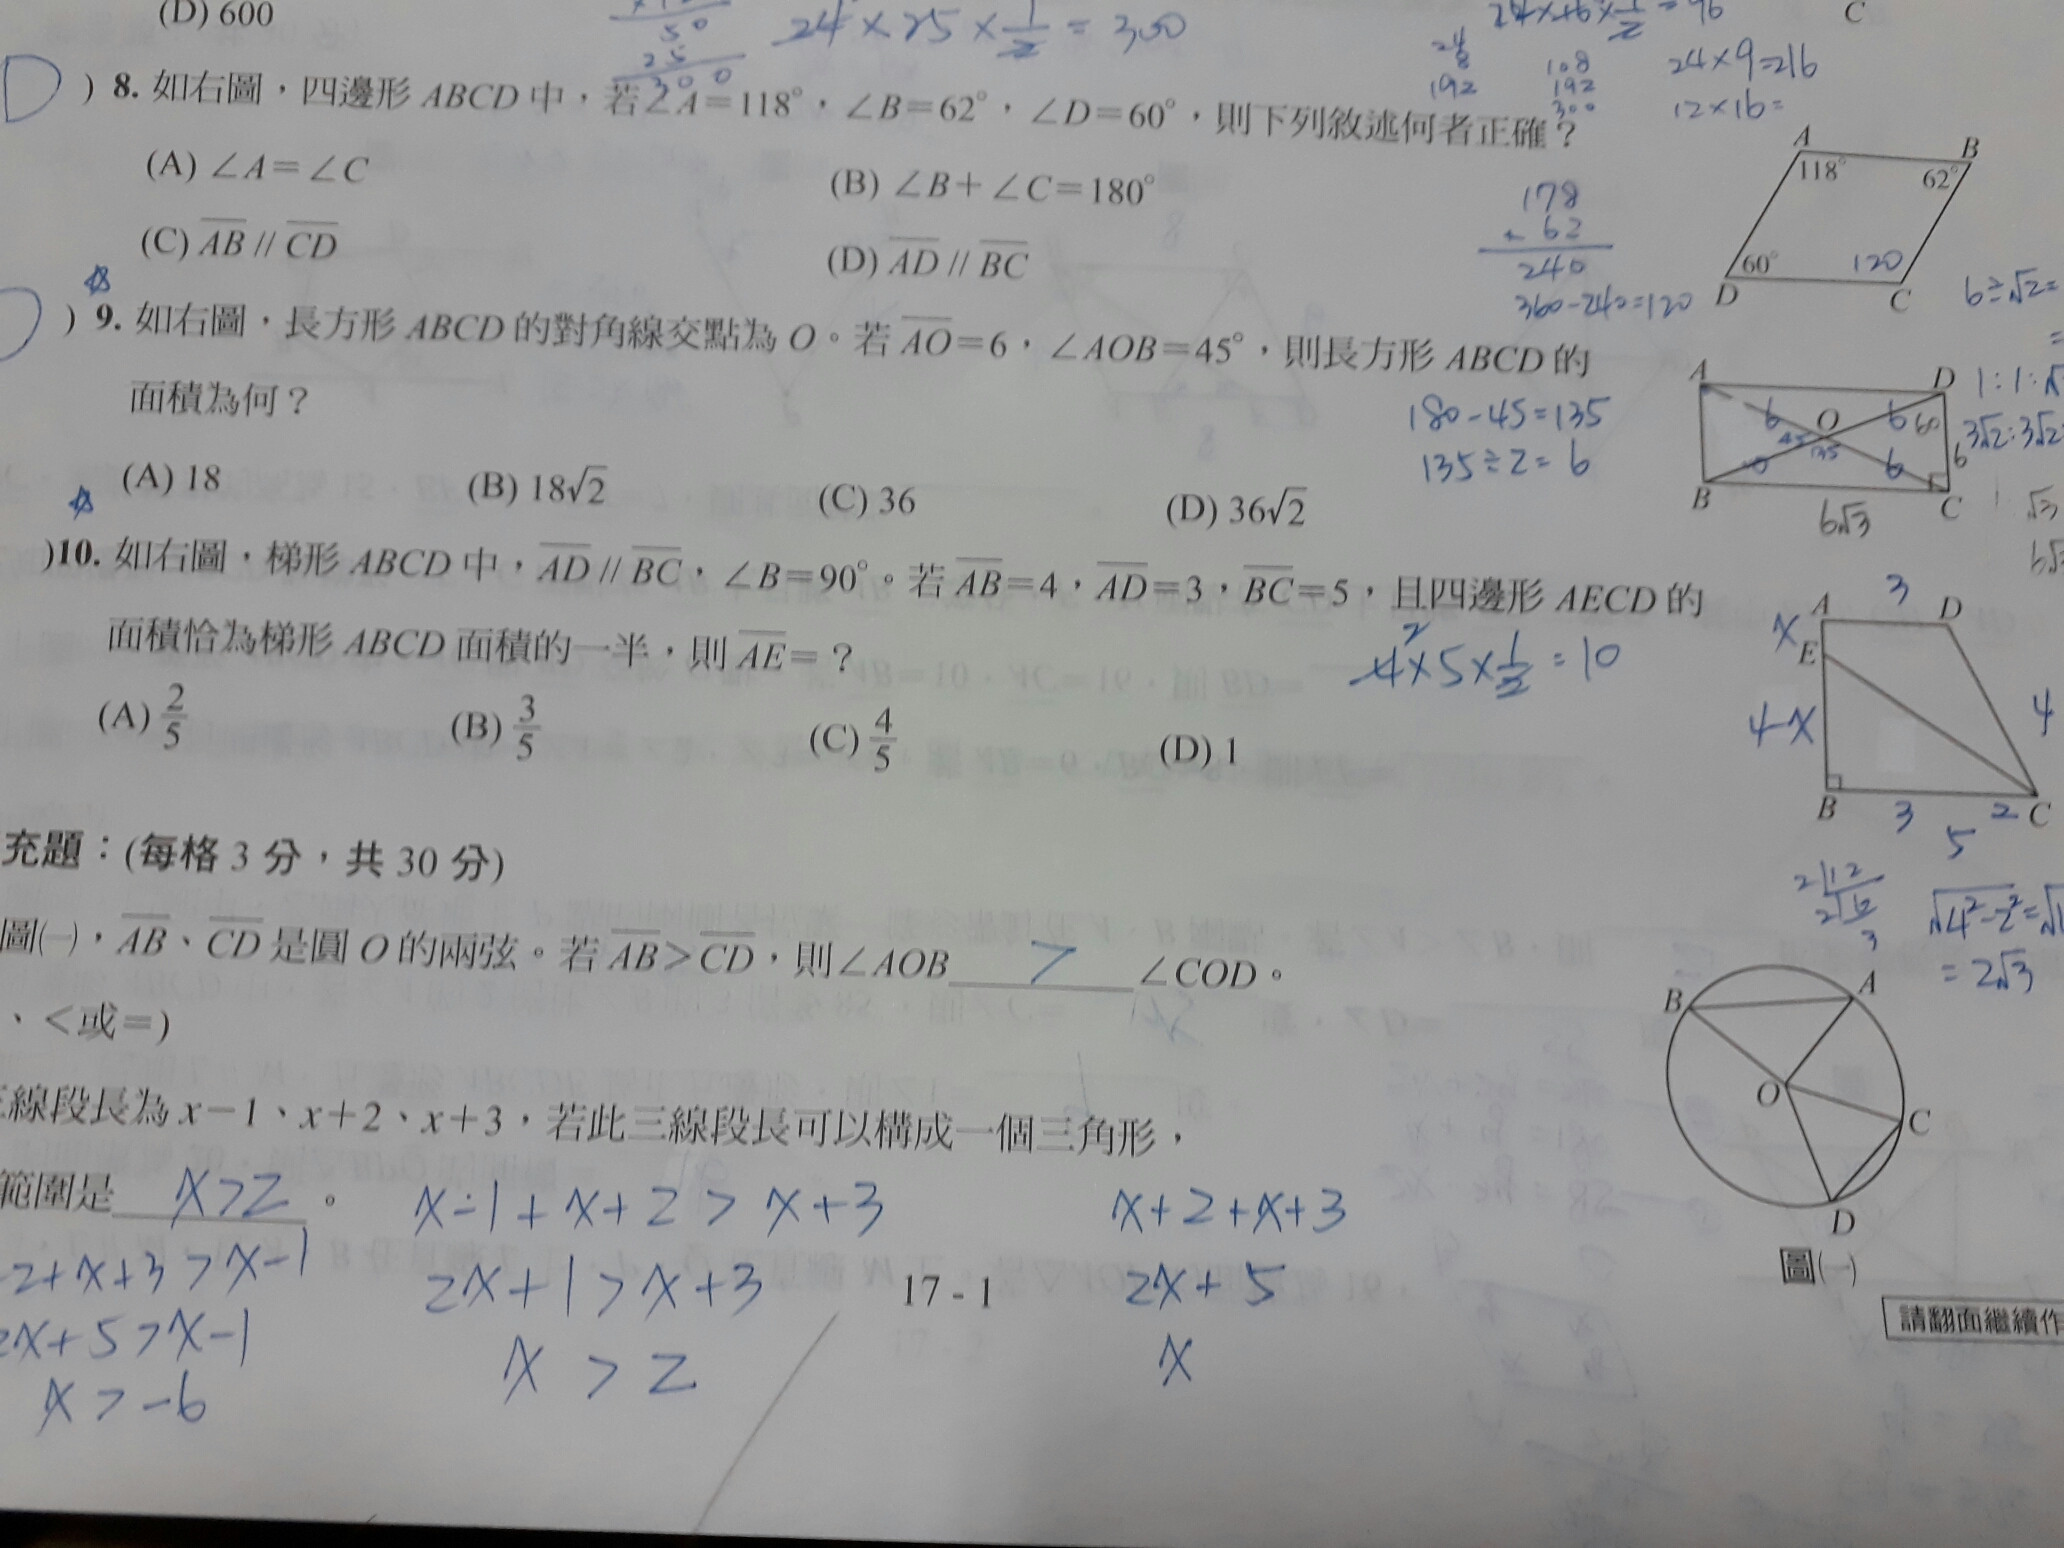 (D) 600
50
25
300
24 × 25 × 1/2 = 300
24×16×1/2 = 96
C
24
8
192
108
192
300
24×9=216
12×16=
D ) 8. 如右圖，四邊形 ABCD 中，若∠A＝118°，∠B＝62°，∠D＝60°，則下列敘述何者正確？
(A) ∠A＝∠C
(B) ∠B＋∠C＝180°
(C) AB // CD
(D) AD // BC
178
+ 62
240
360-240=120
A
B
118°
62°
60°
120
D
C
6÷√2=
) 9. 如右圖，長方形 ABCD 的對角線交點為 O。若 AO＝6，∠AOB＝45°，則長方形 ABCD 的
面積為何？
180-45=135
135÷2= 6
(A) 18
(B) 18√2
(C) 36
(D) 36√2
A
D
O
6
6
45
135
6
6
B
C
6√3
1:1:√
3√2:3√2
√3
)10. 如右圖，梯形 ABCD 中，AD // BC，∠B＝90°。若 AB＝4，AD＝3，BC＝5，且四邊形 AECD 的
面積恰為梯形 ABCD 面積的一半，則 AE＝？
2
4×5×1/2 = 10
(A) 2/5
(B) 3/5
(C) 4/5
(D) 1
3
A
D
x
E
4-x
4
B
3
2
C
5
充題：(每格 3 分，共 30 分)
2 12
2 6
3
√4²-2²=√
= 2√3
圖(一)，AB、CD 是圓 O 的兩弦。若 AB＞CD，則∠AOB > ∠COD。
、＜或＝)
B
A
O
C
D
圖(一)
線段長為 x－1、x＋2、x＋3，若此三線段長可以構成一個三角形，
範圍是 x>2 。
x-1+x+2 > x+3
x+2+x+3
2+x+3 >x-1
2x+1>x+3
17 - 1
2x+5
2x+5 >x-1
x > 2
x
x > -6
請翻面繼續作